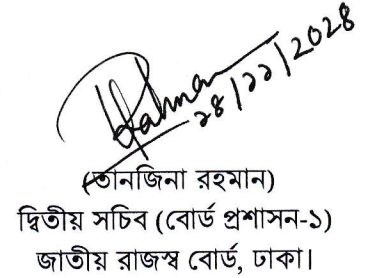 Rahman
২৪/১১/২০২৪
(তানজিনা রহমান)
দ্বিতীয় সচিব (বোর্ড প্রশাসন-১)
জাতীয় রাজস্ব বোর্ড, ঢাকা।